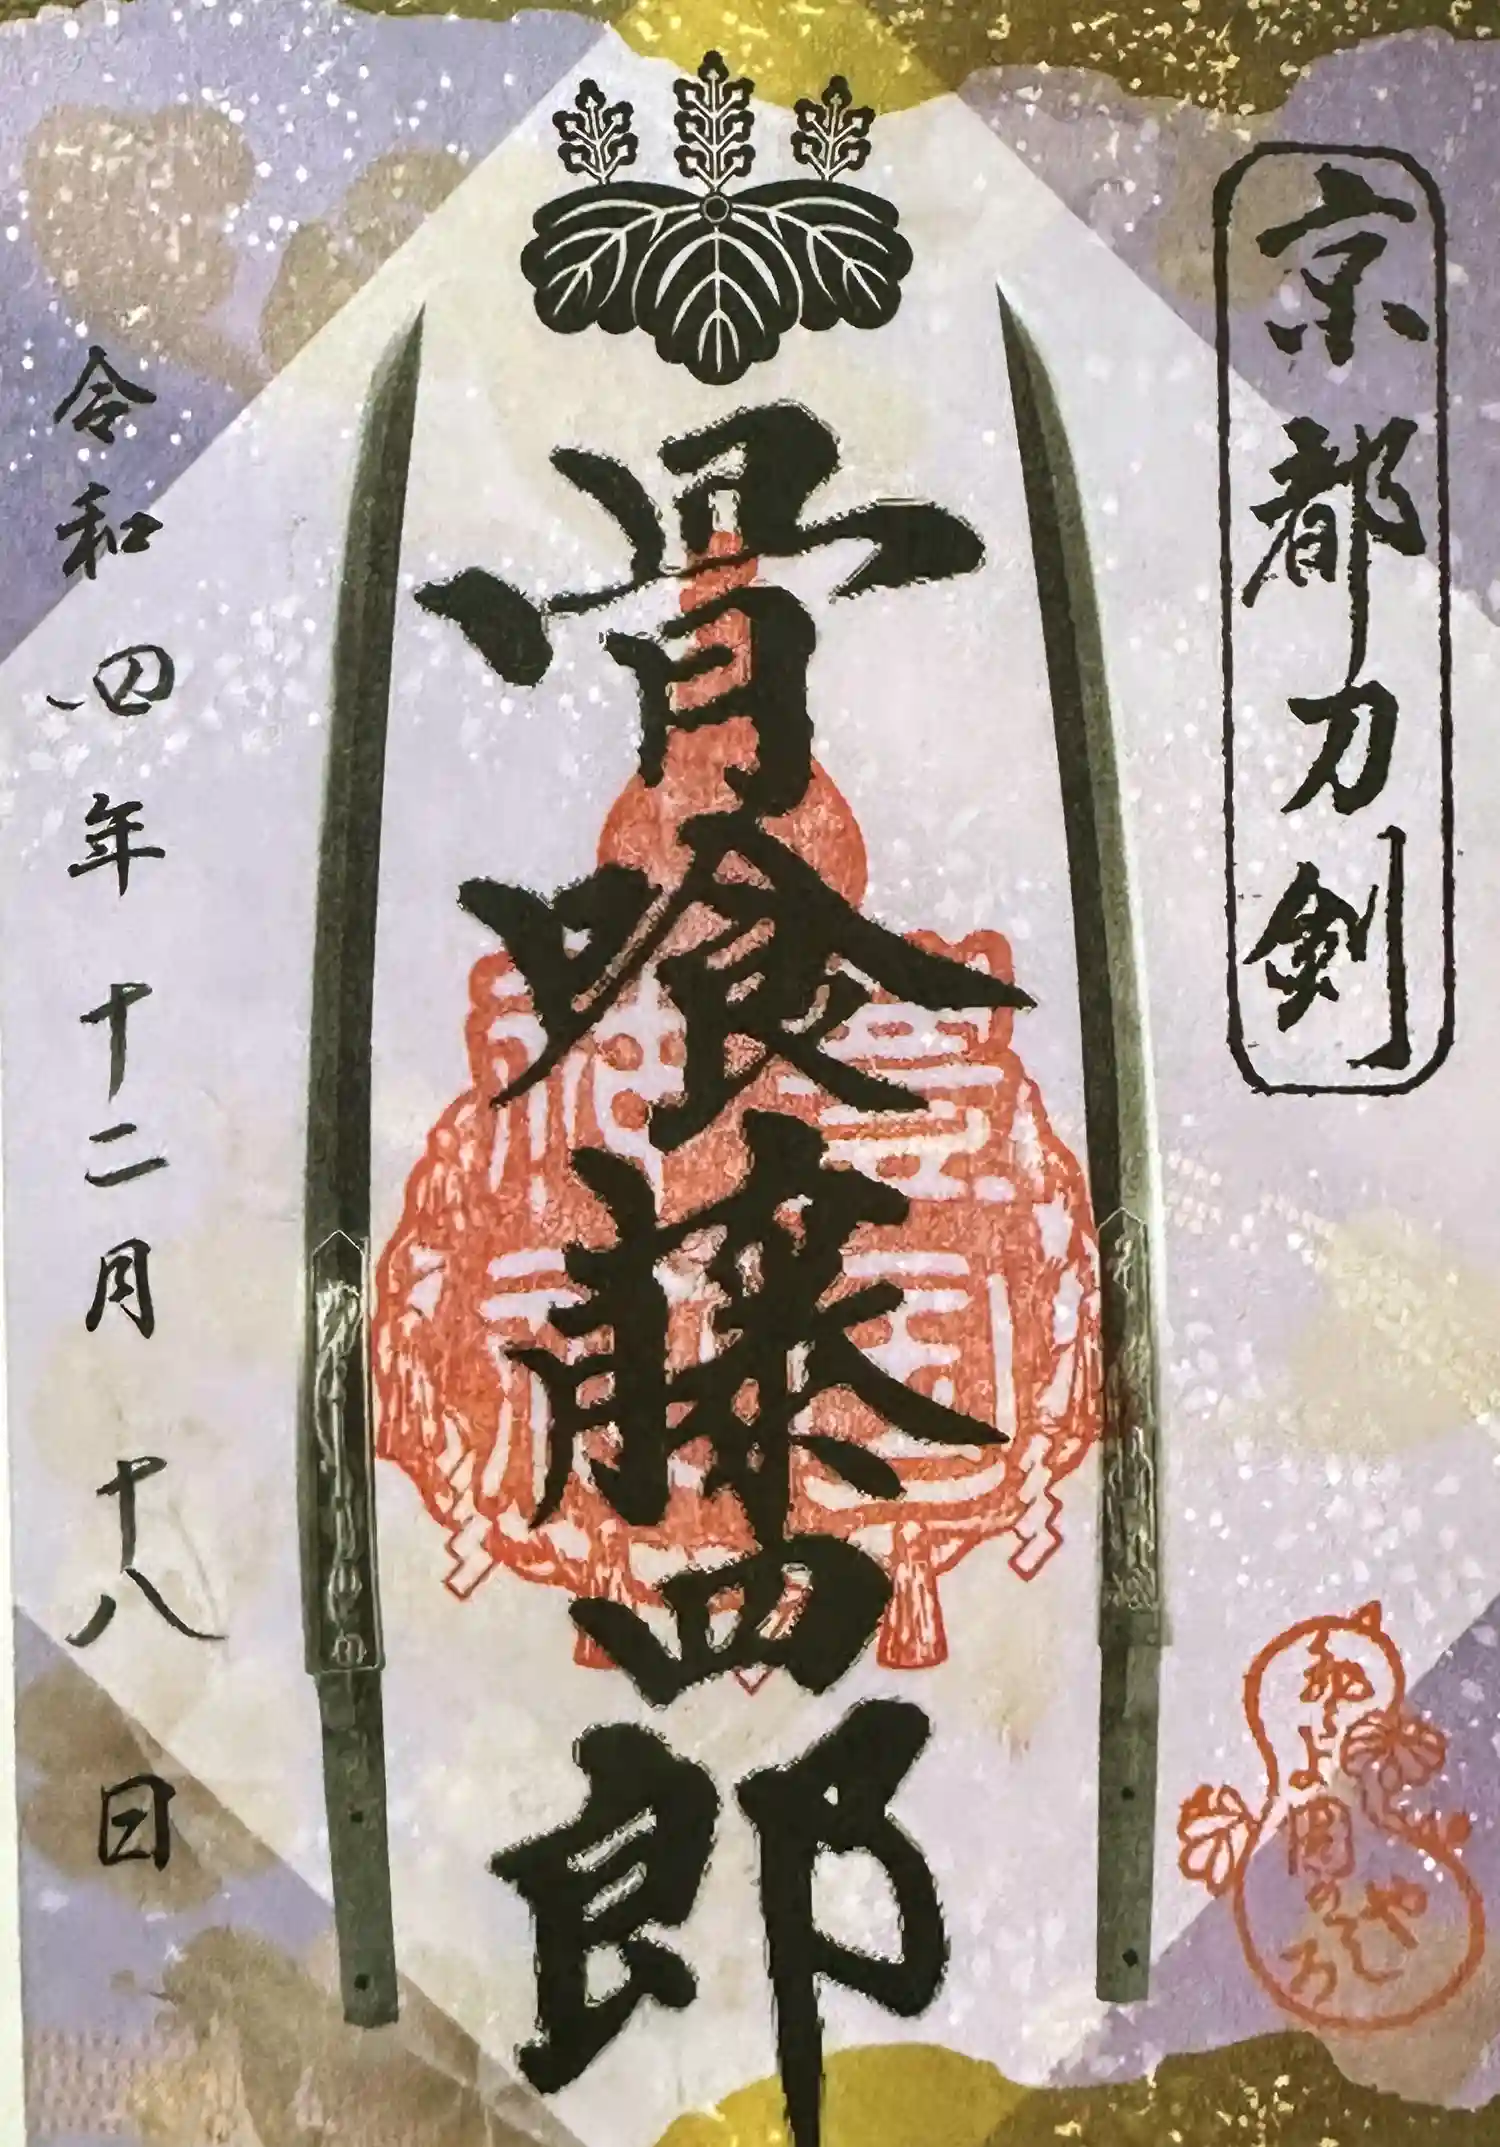 京都刀剣
骨喰藤四郎
令和四年十二月十八日